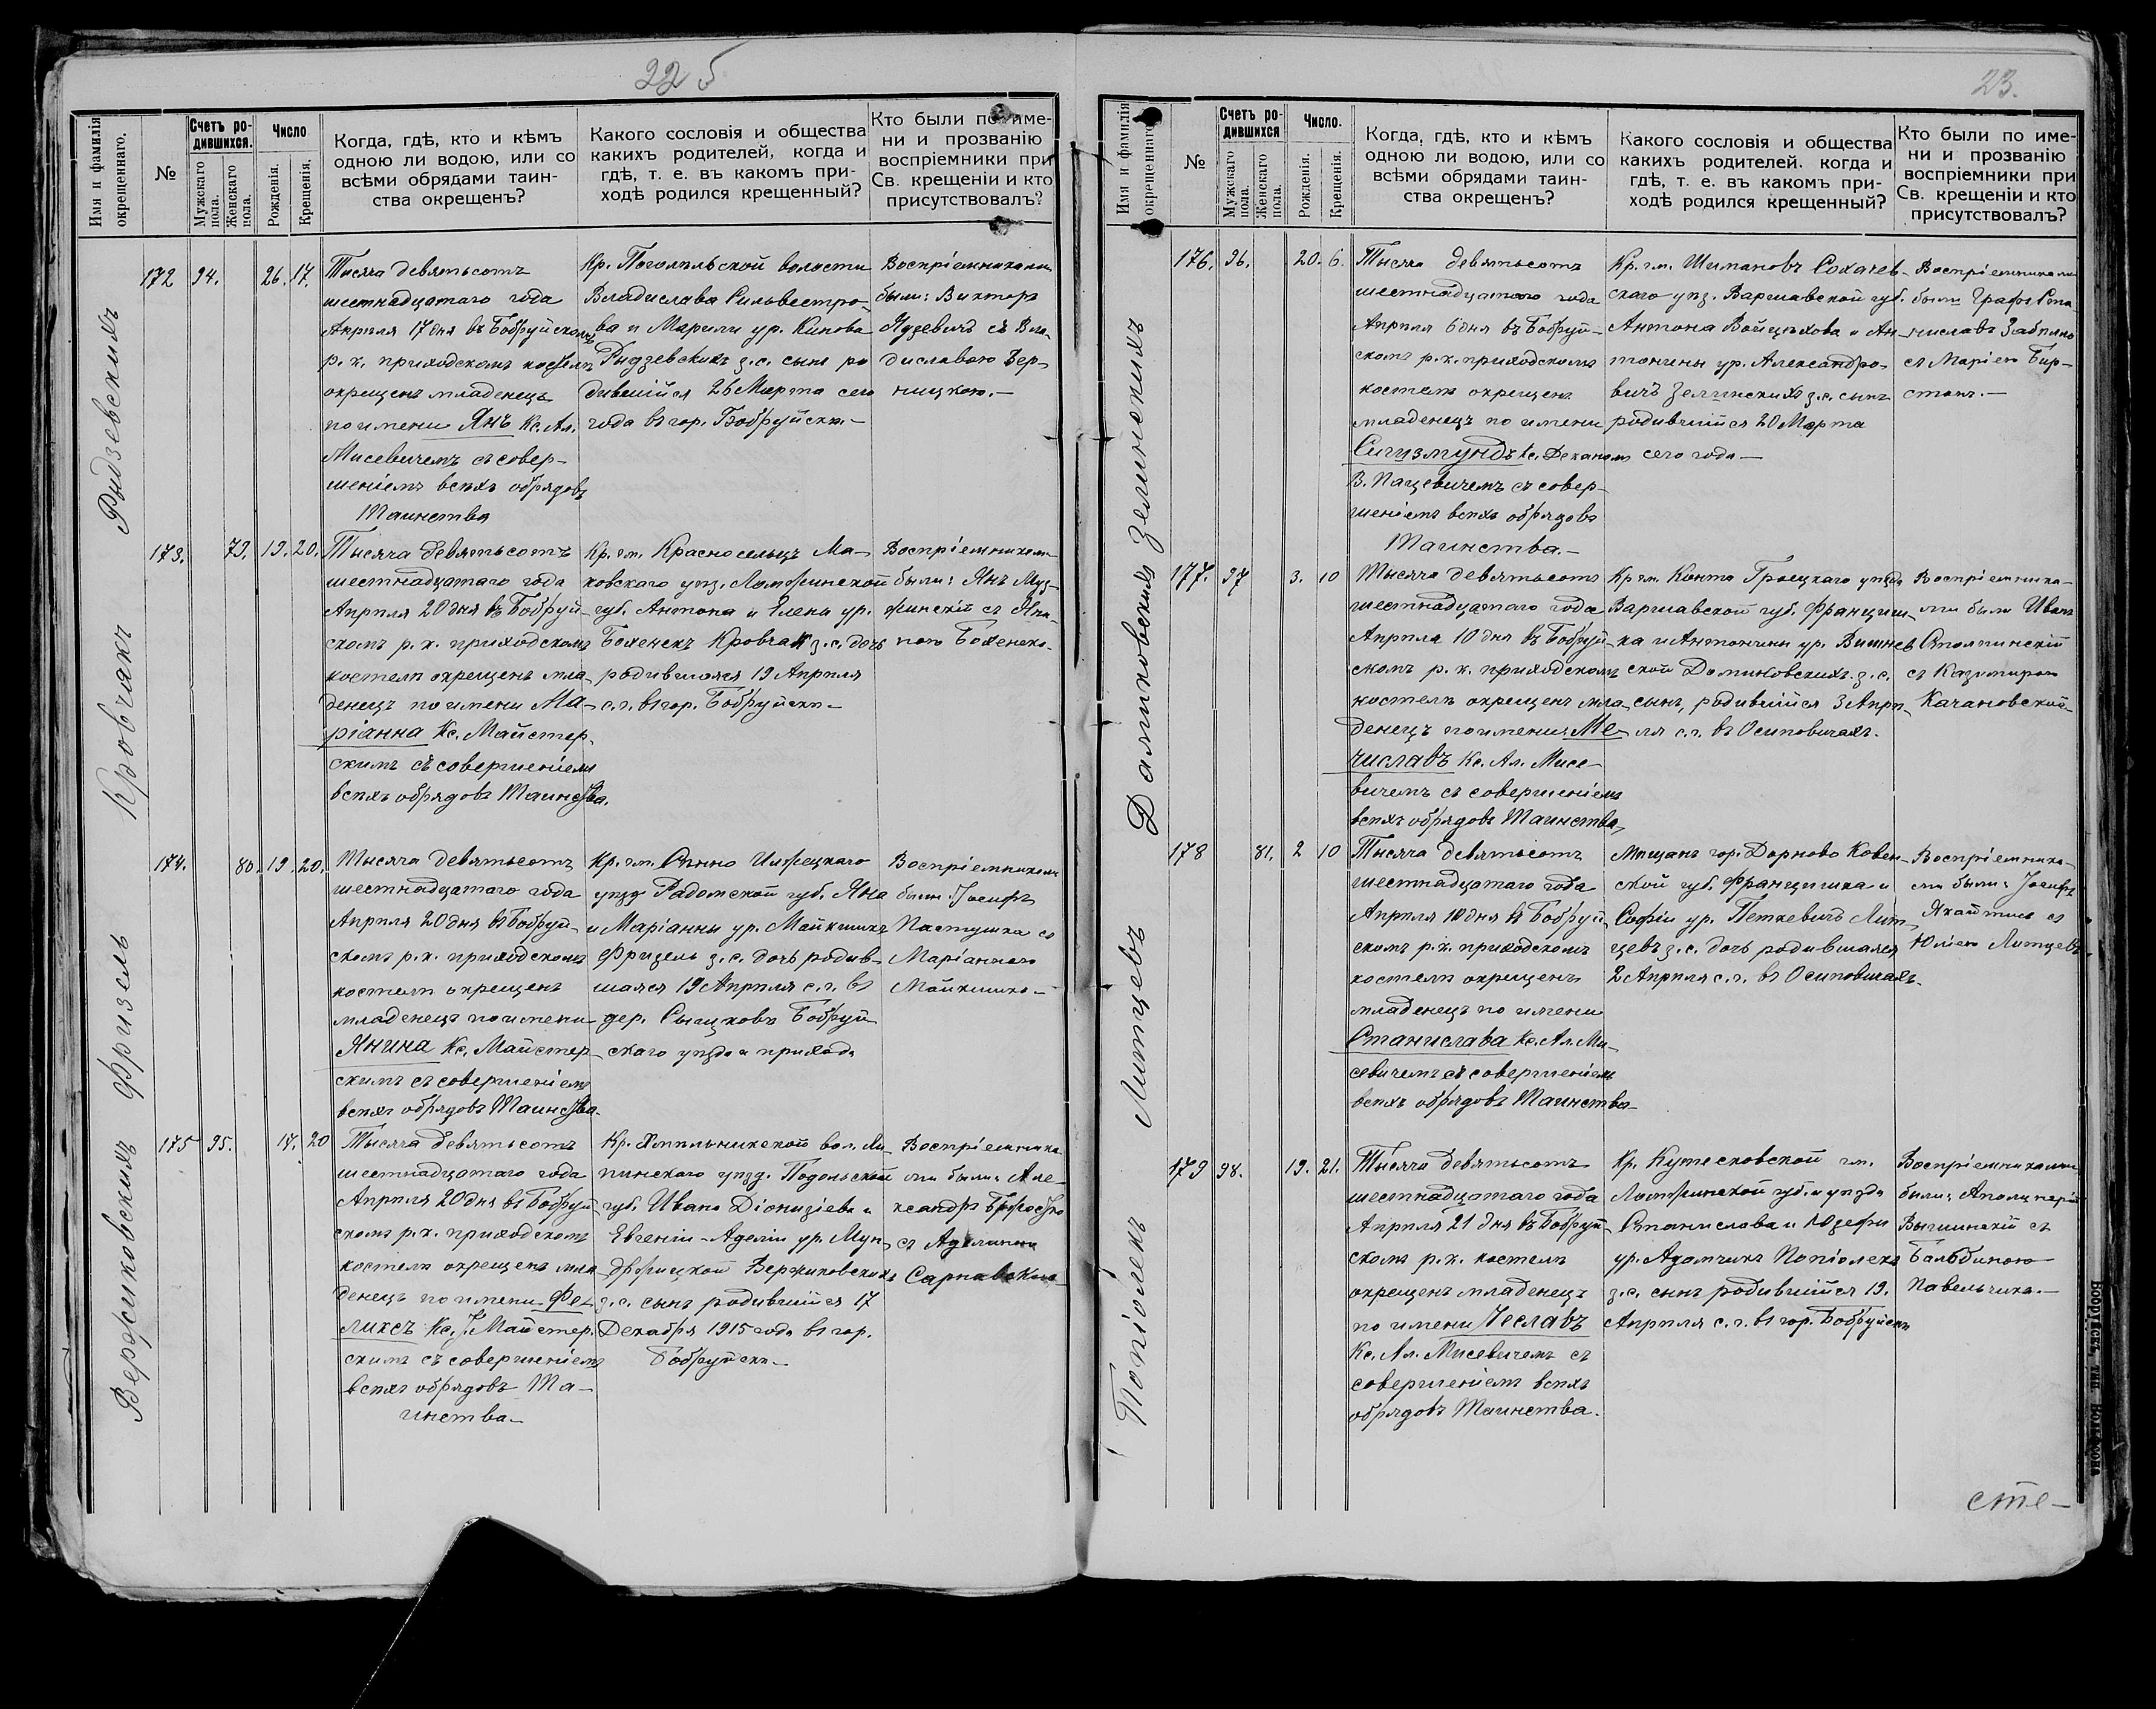 22 5
Имя и фамилія окрещеннаго.
№
Счетъ родившихся.
Мужскаго пола.
Женскаго пола.
Число
Рожденія.
Крещенія.
Когда, гдѣ, кто и кѣмъ
одною ли водою, или со
всѣми обрядами таин-
ства окрещенъ?
Какого сословія и общества
какихъ родителей, когда и
гдѣ, т. е. въ какомъ при-
ходѣ родился крещенный?
Кто были по име-
ни и прозванію
воспріемники при
Св. крещеніи и кто
присутствовалъ?
Рыдзевскихъ
172 94. 26. 17.
Тысяча девятьсотъ
шестнадцатаго года
Апрѣля 17 дня въ Бобруйскомъ
р. к. приходскомъ костелѣ
окрещенъ младенецъ
по имени Янъ Кс. Ал.
Мисевичемъ съ совер-
шеніемъ всѣхъ обрядовъ
Таинства
Кр. волости
Владислава Сильвестро-
ва и Марили ур.
Рыдзевскихъ з.с. сынъ ро
дившійся 26 Марта сего
года въ гор. Бобруйскѣ.-
Воспріемниками
были: Викторъ
съ Вла-
диславою Вер-
ницкою.-
Кровчакъ
173. 79. 19. 20.
Тысяча девятьсотъ
шестнадцатаго года
Апрѣля 20 дня въ Бобруй-
скомъ р. к. приходскомъ
костелѣ окрещенъ мла-
денецъ по имени Ма-
ріанна Кс. Майстер-
скимъ съ совершеніемъ
всѣхъ обрядовъ Таинства.
Кр. гм. Красносельцъ Ма-
ковскаго уѣз. Ломжинской
губ. Антона и Елены ур.
Боженскъ Кровчакъ з.с. дочь
родившаяся 19 Апрѣля
с.г. въ гор. Бобруйскѣ-
Воспріемниками
были: Янъ Муз-
жинскій съ Яни-
ною Боженско-
Фризель
174. 80. 19. 20.
Тысяча девятьсотъ
шестнадцатаго года
Апрѣля 20 дня въ Бобруй-
скомъ р. к. приходскомъ
костелѣ окрещенъ
младенецъ по имени
Янина Кс. Майстер-
скимъ съ совершеніемъ
всѣхъ обрядовъ Таинства-
Кр. гм. Сѣнно Илжецкаго
уѣзд. Радомской губ. Яна
и Маріанны ур. Майкшикъ
Фризель з.с. дочь родив-
шаяся 19 Апрѣля с.г. въ
дер. Сычковъ Бобруй
скаго уѣзда и прихода
Воспріемниками
были: Іосифъ
Пастушка съ
Маріанною
Майкшико-
Вержиковскихъ
175 95. 17. 20
Тысяча девятьсотъ
шестнадцатаго года
Апрѣля 20 дня въ Бобруй-
скомъ р. к. приходскомъ
костелѣ окрещенъ мла-
денецъ по имени Фе-
ликсъ Кс. Майстер-
скимъ съ совершеніемъ
всѣхъ обрядовъ Та-
инства-
Кр. Хмѣльникской вол. Ли-
тинскаго уѣзд. Подольской
губ. Ивана Діонизіева и
Евгеніи-Аделіи ур. Мун-
држицкой Вержиковскихъ
з.с. сынъ родившійся 17
Декабря 1915 года въ гор.
Бобруйскѣ-
Воспріемника-
ми были: Але-
ксандръ
съ
23.
Имя и фамилія окрещеннаго.
№
Счетъ родившихся.
Мужскаго пола.
Женскаго пола.
Число.
Рожденія.
Крещенія.
Когда, гдѣ, кто и кѣмъ
одною ли водою, или со
всѣми обрядами таин-
ства окрещенъ?
Какого сословія и общества
какихъ родителей. когда и
гдѣ, т. е. въ какомъ при-
ходѣ родился крещенный?
Кто были по име-
ни и прозванію
воспріемники при
Св. крещеніи и кто
присутствовалъ?
Зелинскихъ
176. 96. 20. 6.
Тысяча девятьсотъ
шестнадцатаго года
Апрѣля 6 дня въ Бобруй-
скомъ р. к. приходскомъ
костелѣ окрещенъ
младенецъ по имени
Сигизмундъ Кс. Деканомъ
В. Пацевичемъ съ совер-
шеніемъ всѣхъ обрядовъ
Таинства.-
Кр. гм. Шимановъ Сохачев-
скаго уѣз. Варшавской губ.
Антона Войцѣхова и Ан-
тонины ур. Александро-
вичъ Зелинскихъ з.с. сынъ
родившійся 20 Марта
сего года-
Воспріемниками
были Графъ Ста
ниславъ Забѣло
съ Маріею Бир-
Домиковскихъ
177. 97 3. 10
Тысяча девятьсотъ
шестнадцатаго года
Апрѣля 10 дня въ Бобруй-
скомъ р. к. приходскомъ
костелѣ окрещенъ мла-
денецъ по имени Ме-
числавъ Кс. Ал. Мисе-
вичемъ съ совершеніемъ
всѣхъ обрядовъ Таинства-
Кр гм. Конта Гроецкаго уѣзда
Варшавской губ. Францищ-
ка и Антонины ур. Вишнев
ской Домиковскихъ з.с.
сынъ, родившійся 3 Апрѣ-
ля с.г. въ Осиповичахъ.
Воспріемника-
ми были Иванъ
Столпинскій
съ Казимирою
Качановской-
Литцевъ
178 81. 2 10
Тысяча девятьсотъ
шестнадцатаго года
Апрѣля 10 дня въ Бобруй-
скомъ р. к. приходскомъ
костелѣ окрещенъ
младенецъ по имени
Станислава Кс. Ал. Ми-
севичемъ съ совершеніемъ
всѣхъ обрядовъ Таинства-
Мѣщанъ гор. Дорново Ковен-
ской губ. Францишка и
Софіи ур. Петкевичъ Лит-
цевъ з.с. дочь родившаяся
2 Апрѣля с.г. въ Осиповичахъ.
Воспріемника-
ми были: Іосифъ
съ
Юліею Литцевъ-
Попіолекъ
179 98. 19. 21.
Тысяча девятьсотъ
шестнадцатаго года
Апрѣля 21 дня въ Бобруй-
скомъ р. к. костелѣ
окрещенъ младенецъ
по имени Чеславъ
Кс. Ал. Мисевичемъ съ
совершеніемъ всѣхъ
обрядовъ Таинства.
Кр. Кутесковской гм.
Ломжинской губ. и уѣзда
Станислава и Юзефы
ур. Адамчикъ Попіолекъ
з.с. сынъ родившійся 19.
Апрѣля с.г. въ гор. Бобруйскѣ
Воспріемниками
были:
съ
Бальбиною
Павельчика.-
сте-